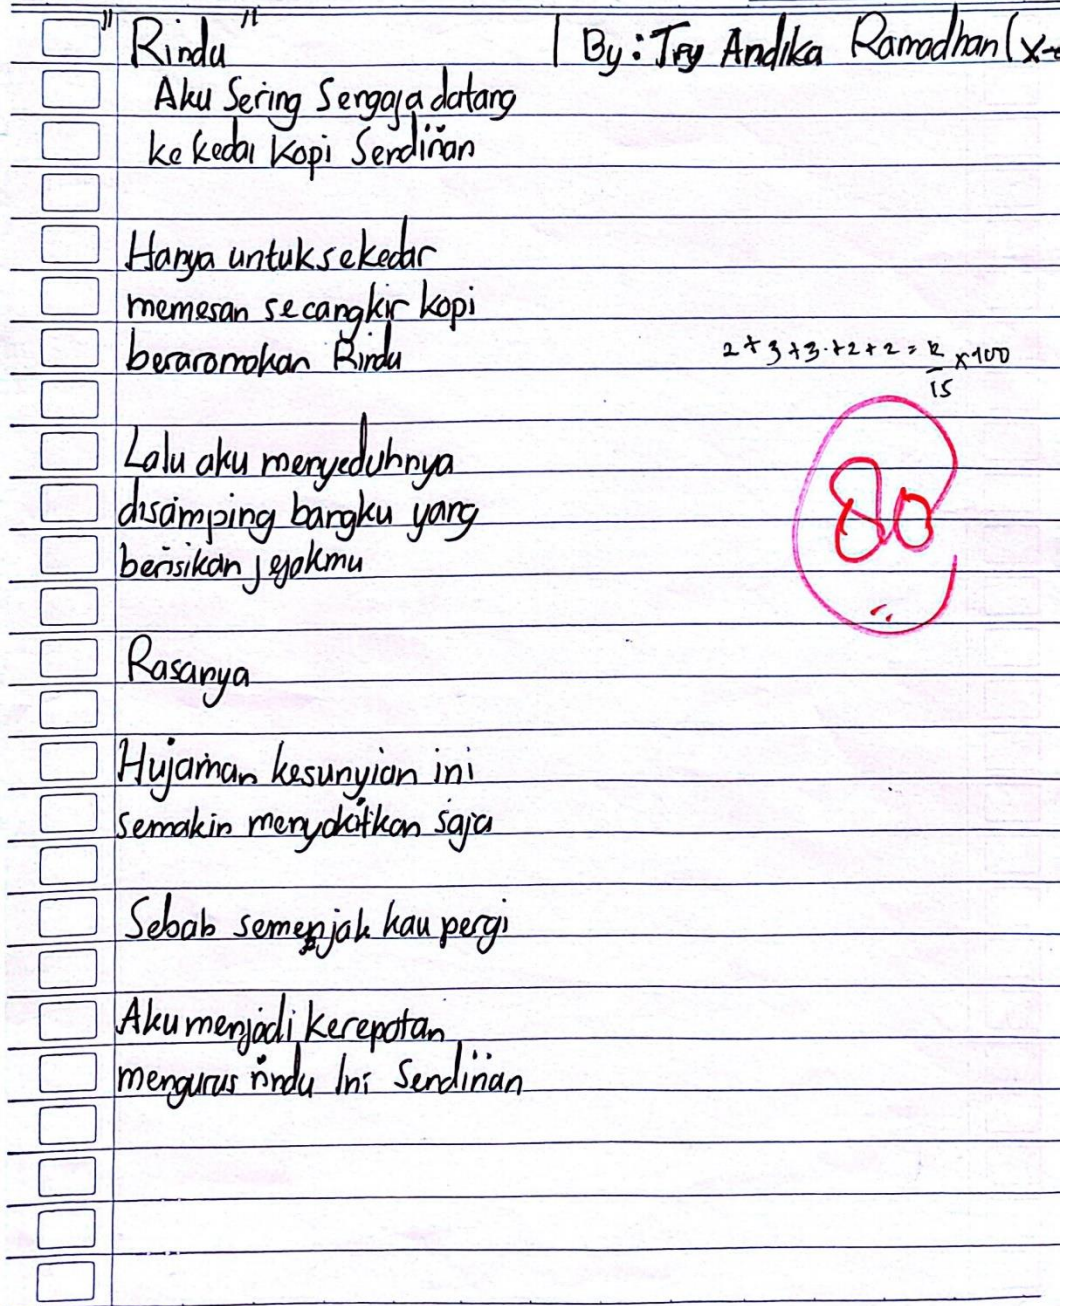 "Rindu" | By: Try Andika Ramadhan (X-
Aku Sering Sengaja datang
ke kedai kopi Serdirian
Hanya untuk sekedar
memesan secangkir kopi
beraromakan Rindu
2+3+3+2+2 = 12/15 x 100
80
Lalu aku menyeduhnya
disamping bangku yang
berisikan jejakmu
Rasanya
Hujaman kesunyian ini
semakin menyakitkan saja
Sebab semenjak kau pergi
Aku menjadi kerepotan
mengurus rindu Ini Sendirian